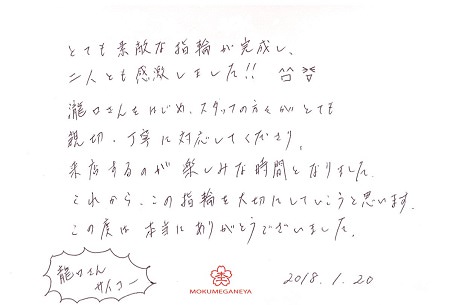 とても素敵な指輪が完成し、
二人とも感激しました!!
瀧口さんをはじめ、スタッフの方々がとても
親切・丁寧に対応してくださり、
来店するのが楽しみな時間となりました。
これから、この指輪を大切にしていこうと思います。
この度は本当にありがとうございました。
瀧口さん
サイコー
MOKUMEGANEYA
2018.1.20